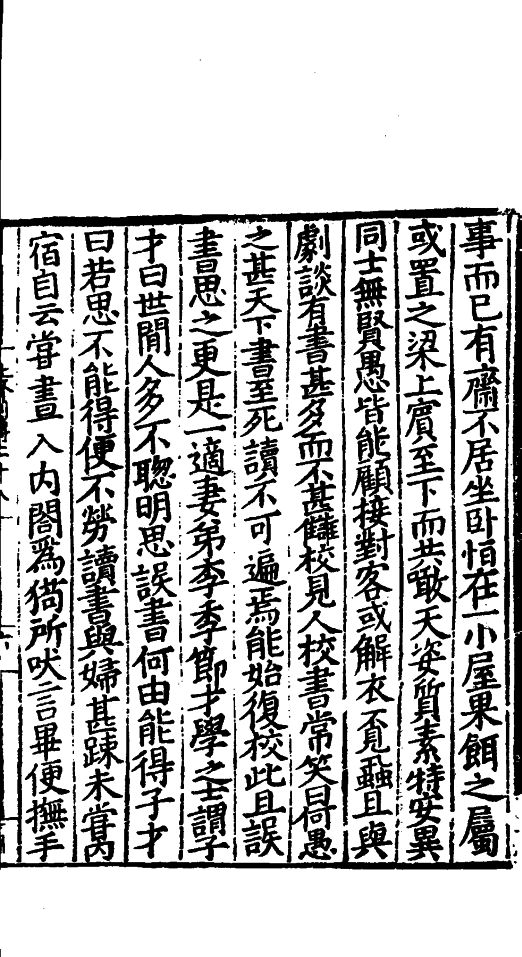 事而已有齋不居坐卧恒在一小屋果餌之屬
或置之梁上賔至下而共噉天姿質素特安異
同士無賢愚皆能顧接對客或解衣覔蝨且與
劇談有書甚多而不甚讎校見人校書常笑曰何愚
之甚天下書至死讀不可遍焉能始復校此且誤
書思之更是一適妻弟李季節才學之士謂子
才曰世間人多不聰明思誤書何由能得子才
曰若思不能得便不勞讀書與婦甚踈未嘗内
宿自云嘗晝入内閤爲猗所吠言畢便撫手